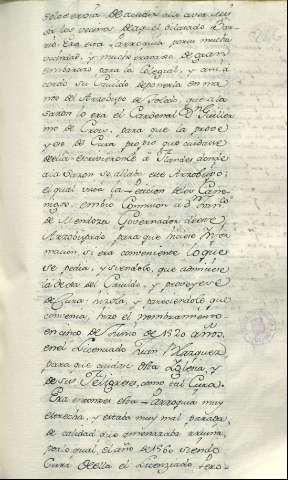 solo servia de
los vecinos de aquel dilatado Bar-
rio. Era esta Parroquia para mucha
vecindad, y mucho
embarazo para la Colegial, y asi a-
cordó su Cavildo deponerla en ma-
no del Arzobispo de Toledo, que a la
sazon lo era el Cardenal Dn. Guiller-
mo de Croy, para que la prove-
yese de Cura propio que cuidase
della: escrivieronle a Flandes donde
a la sazon se allaba este Arzobispo;
el qual vista la Peticion delos Cano-
nigos, embio Comision a Dn.
de Mendoza Governador deste
Arzobispado, para que hiciese Infor-
macion si era conveniente lo que
se pedia, y siendolo, que admitiese
la del Cavildo, y proveyese
de Cura: hizola, y pareciendole que
convenia, hizo el nombramiento
en cinco de Junio de 1520 años,
en el Licenciado Juan Marquez
para que cuidase esta Iglesia, y
de sus Feligreses, como tal Cura.
Era entonces esta Parroquia muy
estrecha, y estaba muy mal parada,
de calidad que amenazaba rruyna,
por lo qual, el año de 1560 siendo
Cura della el Licenciado Pero